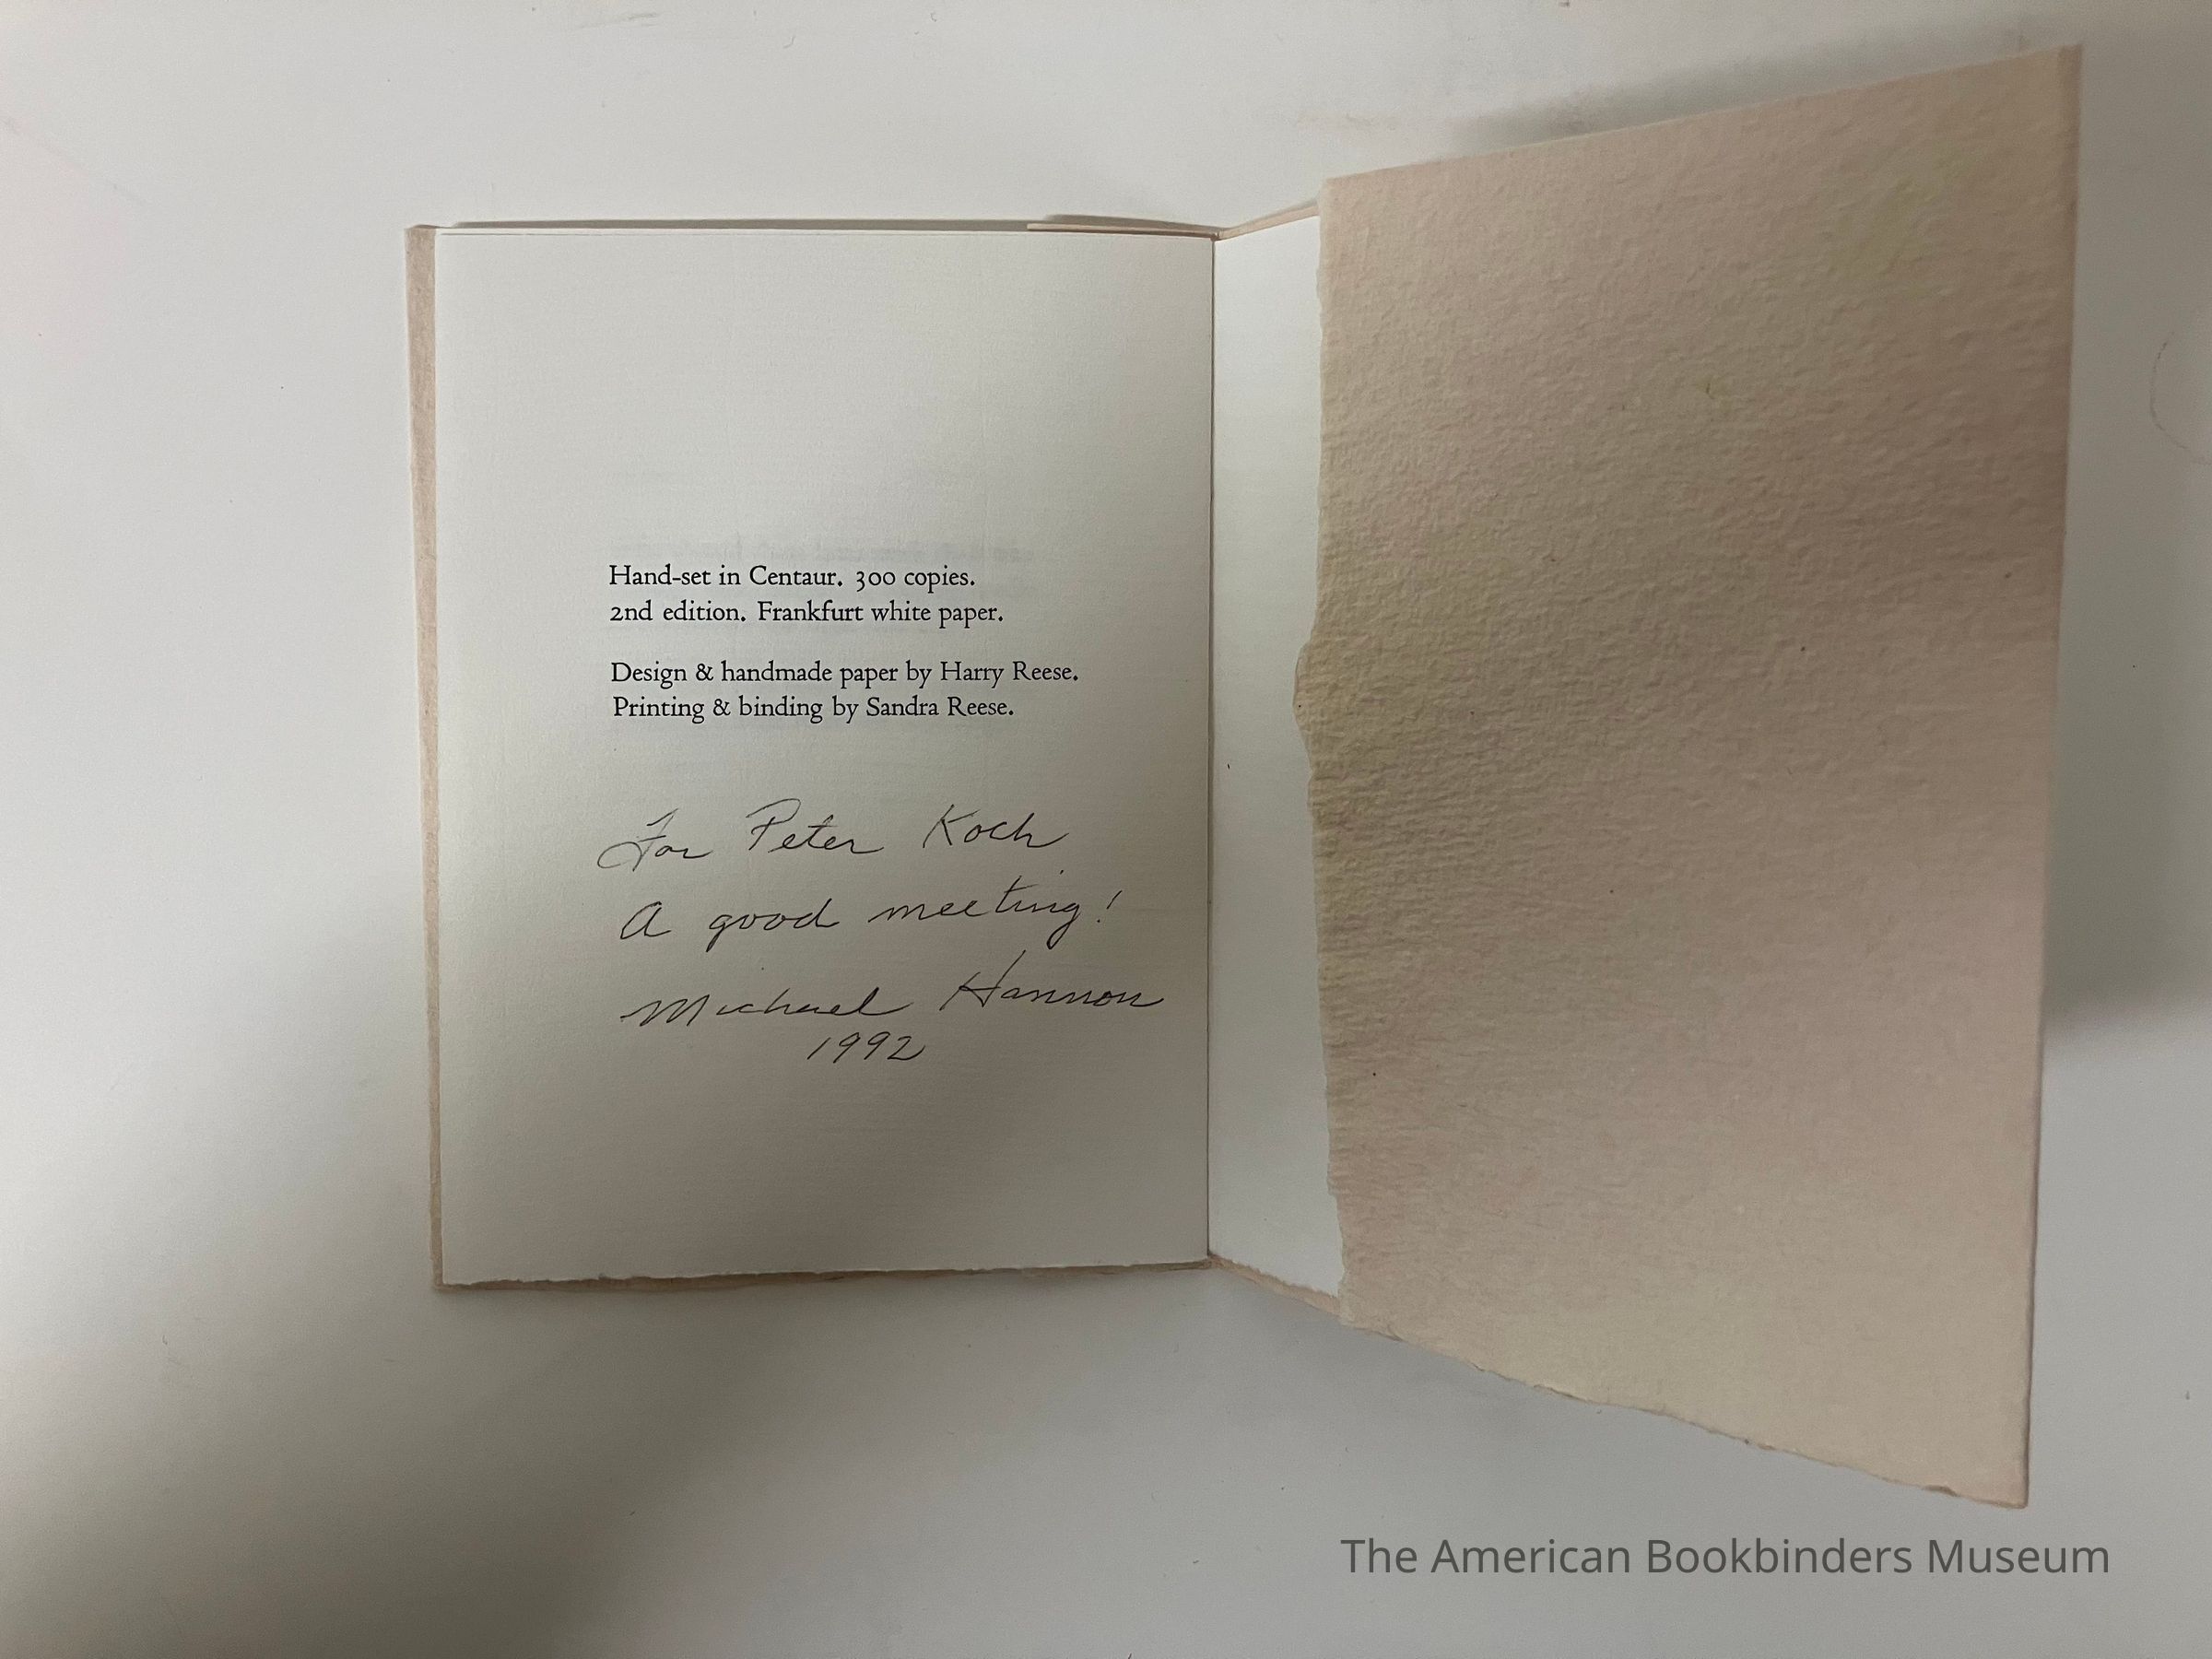 Hand-set in Centaur. 300 copies.
2nd edition. Frankfurt white paper.
Design & handmade paper by Harry Reese.
Printing & binding by Sandra Reese.
For Peter Koch
A good meeting!
Michael Hannon
1992
The American Bookbinders Museum